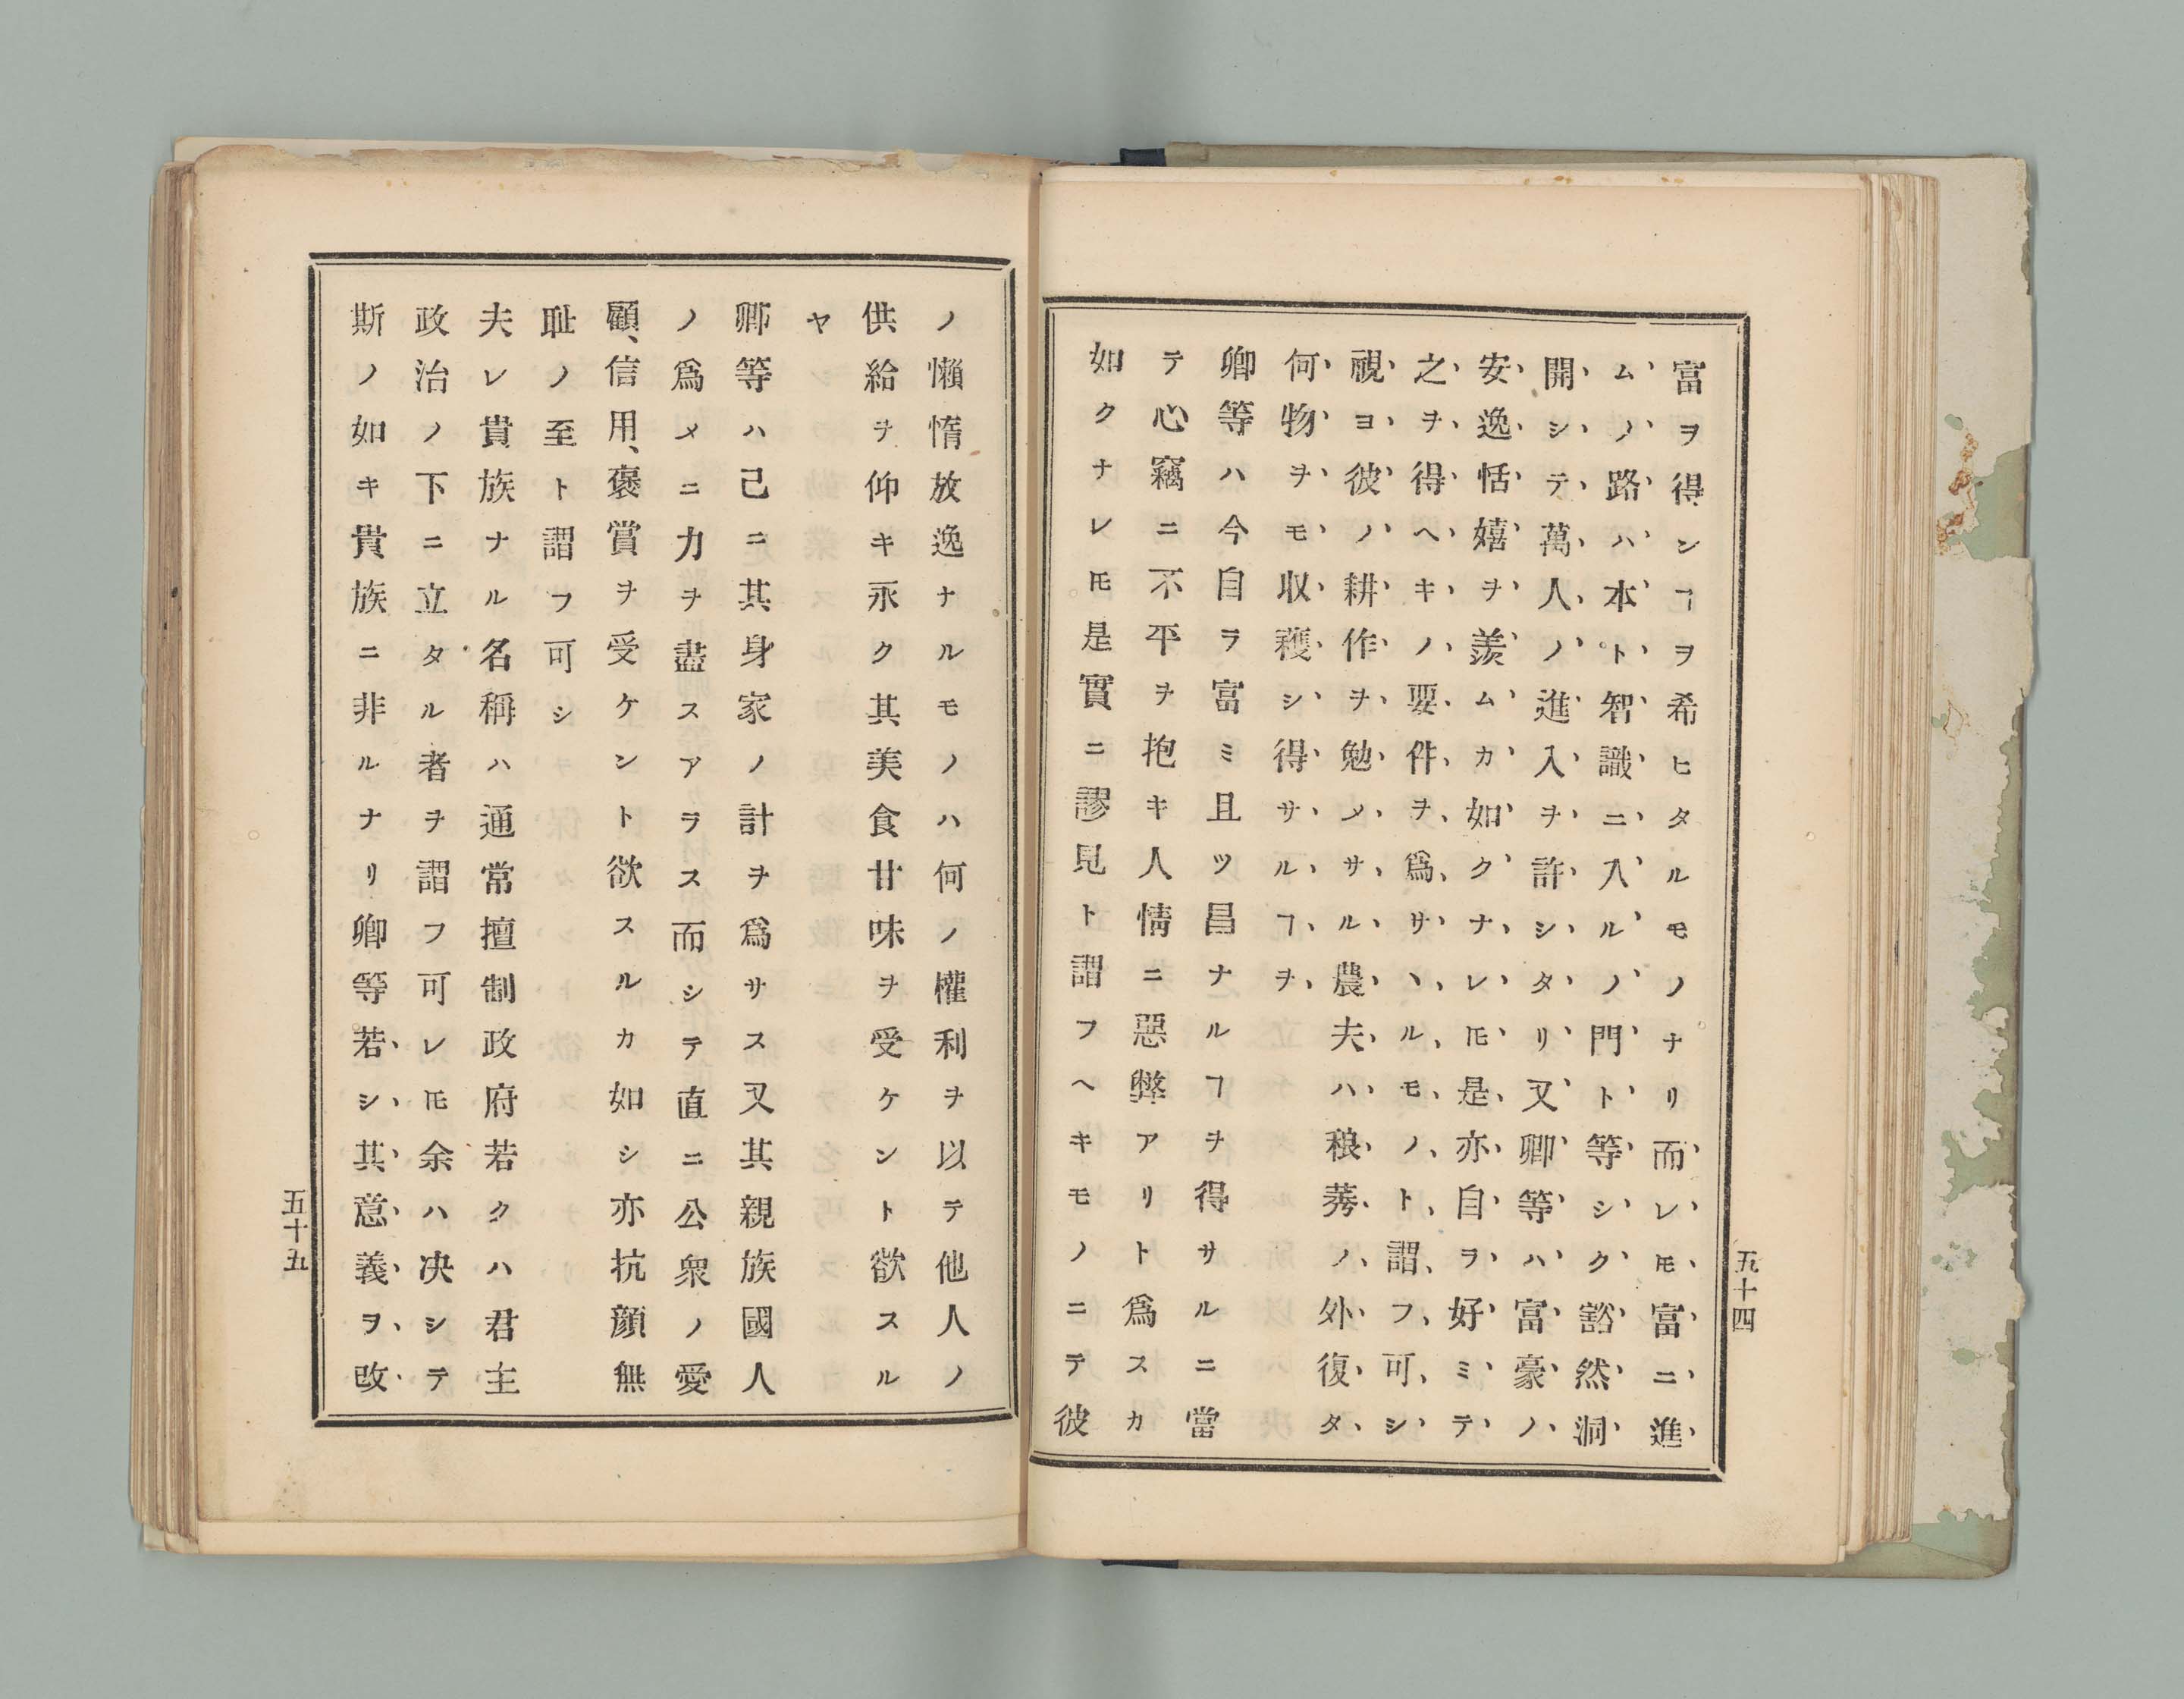 富ヲ得ンヿヲ希ヒタルモノナリ而レ𪜈富ニ進
ムノ路ハ本ト智識ニ入ルノ門ト等シク豁然洞
開シテ萬人ノ進入ヲ許シタリ又卿等ハ富豪ノ
安逸恬嬉ヲ羨ムカ如クナレ𪜈是亦自ヲ好ミテ
之ヲ得ヘキノ要件ヲ爲サヽルモノト謂フ可シ
視ヨ彼ノ耕作ヲ勉メサル農夫ハ稂莠ノ外復タ
何物ヲモ収穫シ得サルヿヲ
卿等ハ今自ラ富ミ且ツ昌ナルヿヲ得サルニ當
テ心竊ニ不平ヲ抱キ人情ニ惡弊アリト爲スカ
如クナレ𪜈是實ニ謬見ト謂フヘキモノニテ彼
五十四
ノ懶惰放逸ナルモノハ何ノ權利ヲ以テ他人ノ
供給ヲ仰キ永ク其美食甘味ヲ受ケント欲スル
ヤ
卿等ハ己ニ其身家ノ計ヲ爲サス又其親族國人
ノ爲メニ力ヲ盡スアラス而シテ直ニ公衆ノ愛
顧、信用、褒賞ヲ受ケント欲スルカ如シ亦抗顔無
耻ノ至ト謂フ可シ
夫レ貴族ナル名稱ハ通常擅制政府若クハ君主
政治ノ下ニ立タル者ヲ謂フ可レ𪜈余ハ决シテ
斯ノ如キ貴族ニ非ルナリ卿等若シ其意義ヲ改
五十五